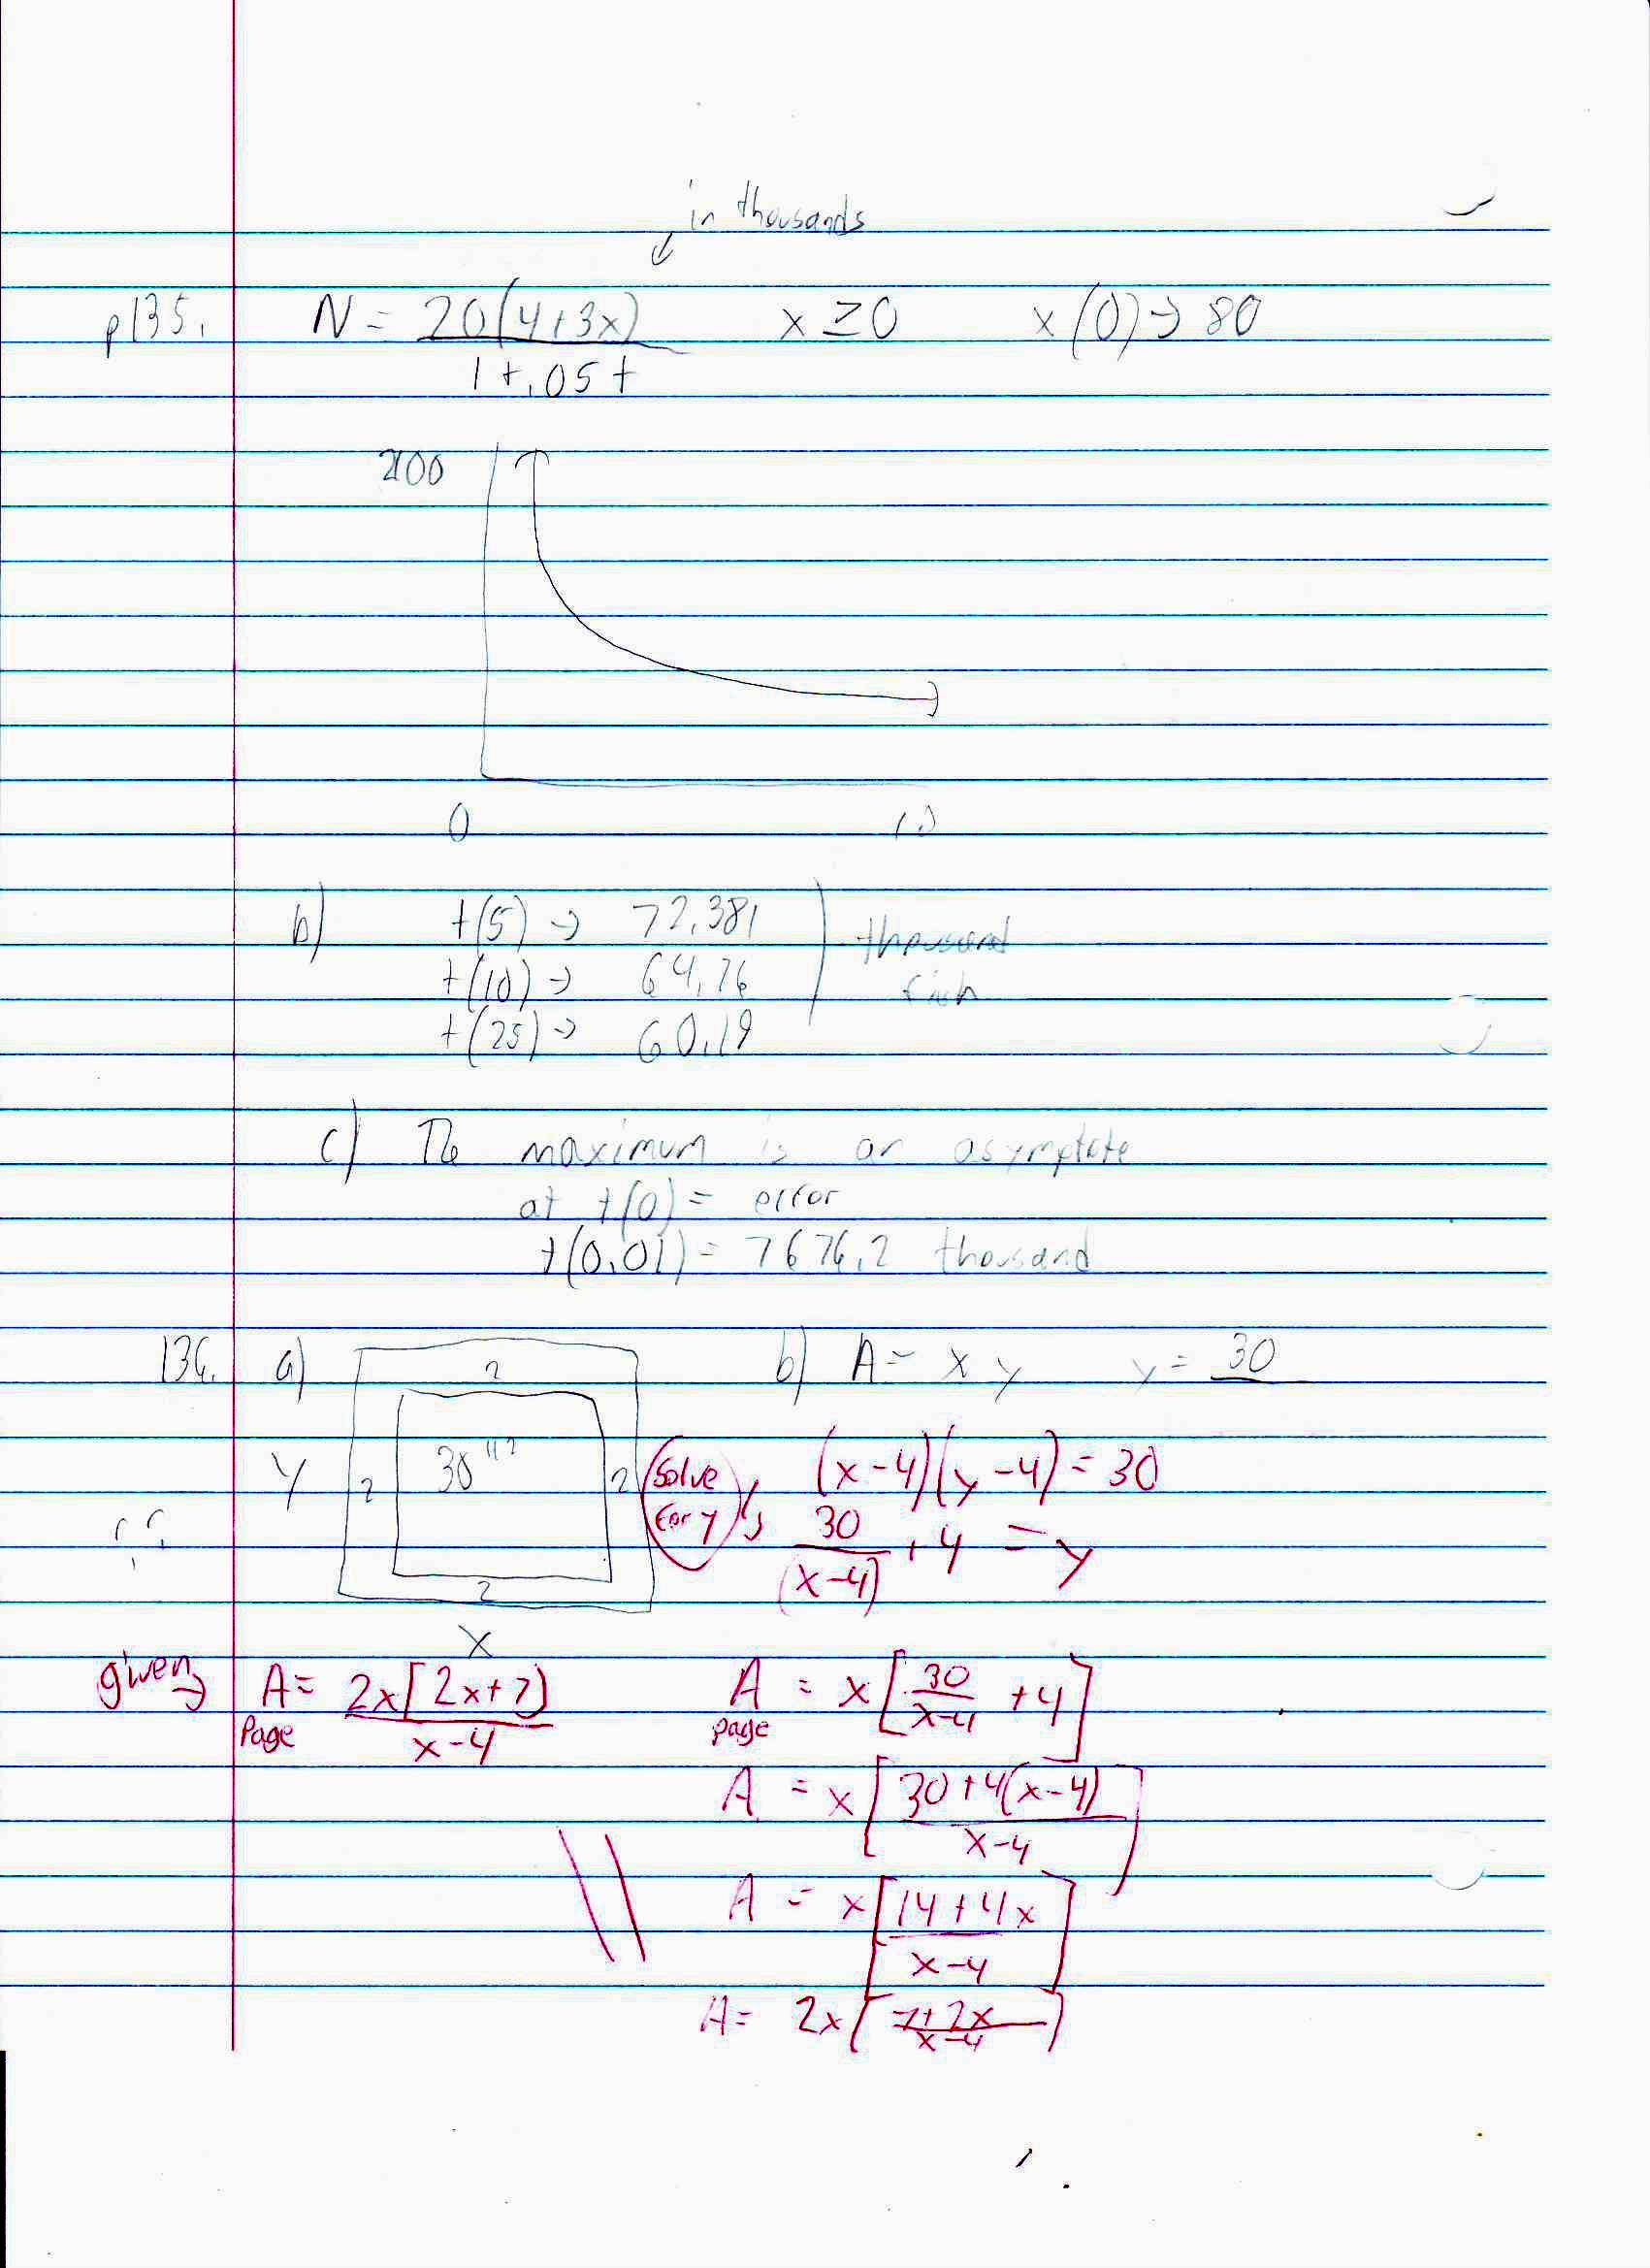 in thousands
p135. N = 20(4+3x) x ≥ 0 x(0) → 80
1+.05t
200
0 10
b) t(5) → 72.381
t(10) → 64.76
t(25) → 60.19
thousand
fish
c) The maximum is an asymptote
at t(0) = error
t(0.01) = 7676.2 thousand
136. a) 2 b) A = xy y = 30
y 2 30 2 Solve for y (x-4)(y-4) = 30
30/(x-4) + 4 = y
2
x
given A = 2x[2x+7] A = x[30/(x-4) + 4]
Page x-4 page
A = x[30+4(x-4)
x-4
A = x[14+4x
x-4]
A = 2x[7+2x
x-4]